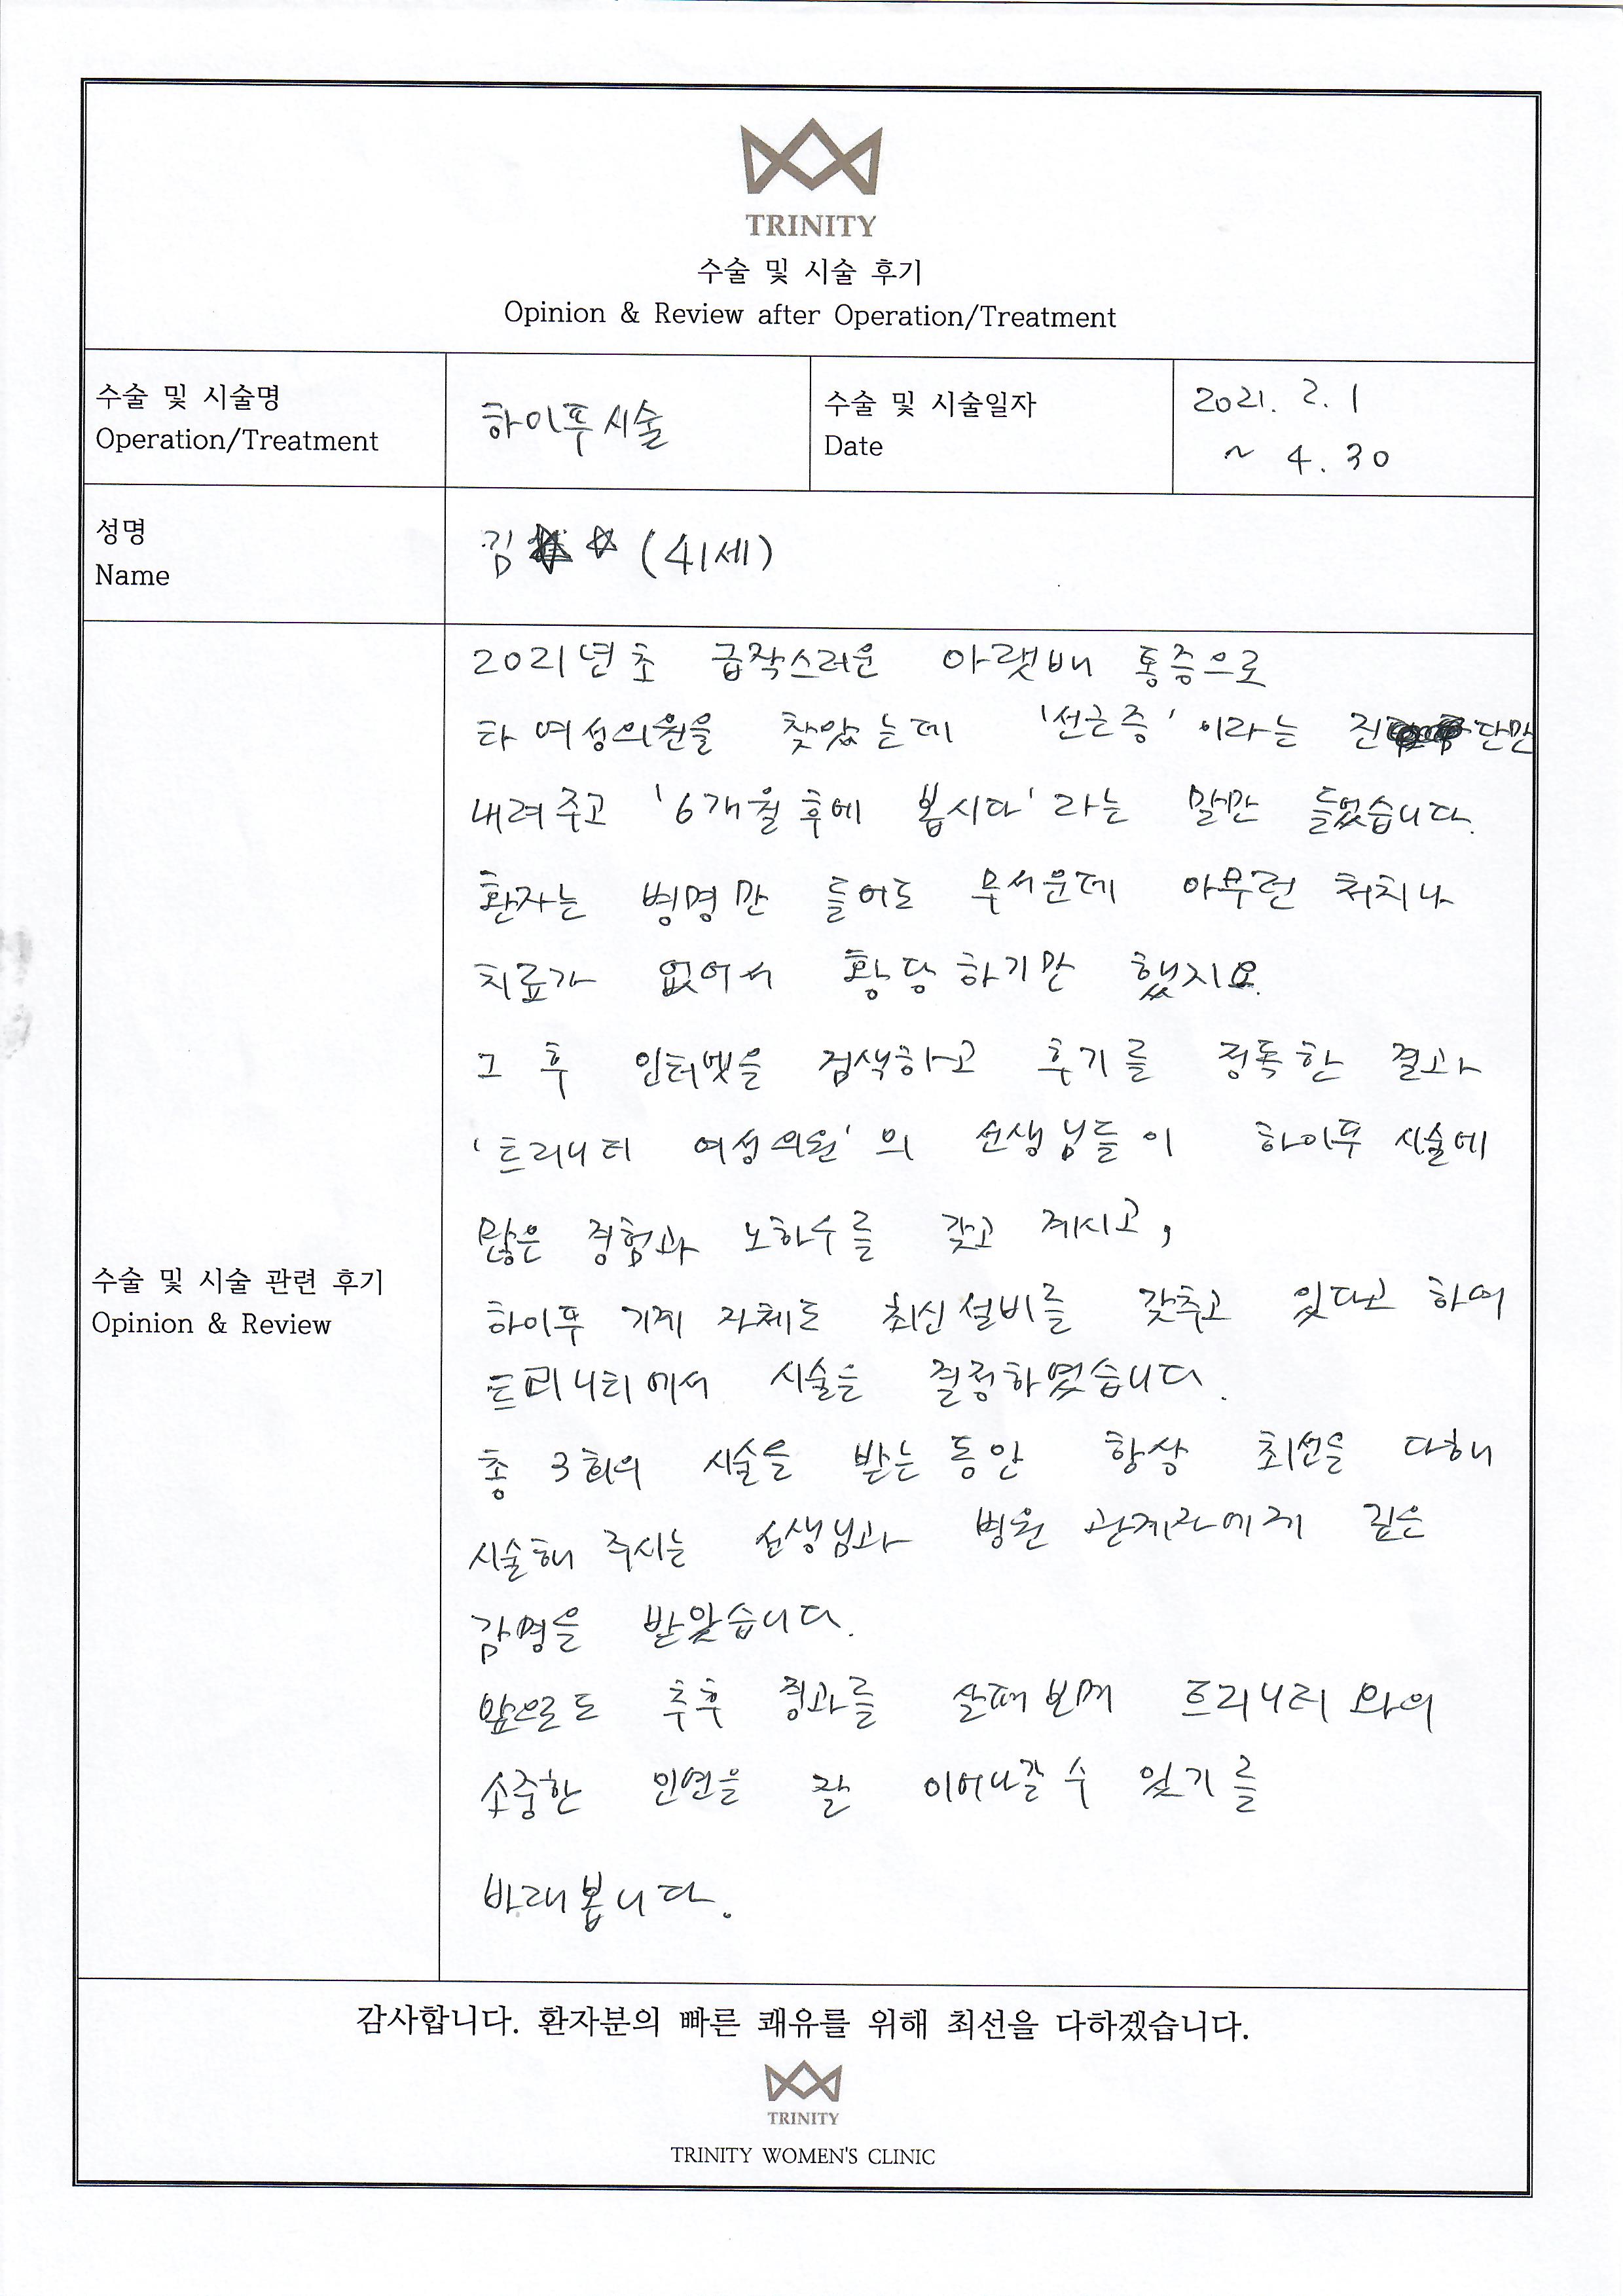 TRINITY
수술 및 시술 후기
Opinion & Review after Operation/Treatment
수술 및 시술명
Operation/Treatment
하이푸시술
수술 및 시술일자
Date
2021. 2. 1
~ 4. 30
성명
Name
김 ☆☆ (41세)
2021년초 급작스러운 아랫배 통증으로
타 여성의원을 찾았는데 '선근증'이라는 진단만
내려주고 '6개월후에 봅시다'라는 말만 들었습니다.
환자는 병명만 들어도 무서운데 아무런 처치나
치료가 없어서 황당하기만 했지요.
그 후 인터넷을 검색하고 후기를 정독한 결과
'트리니티 여성의원'의 선생님들이 하이푸 시술에
많은 경험과 노하수를 갖고 계시고,
하이푸 기계 자체도 최신설비를 갖추고 있다고 하여
트리니티에서 시술을 결정하였습니다.
총 3회의 시술을 받는동안 항상 최선을 다해
시술해 주시는 선생님과 병원 관계자에게 깊은
감명을 받았습니다.
앞으로도 추후 경과를 살펴보며 트리니티와의
소중한 인연을 잘 이어나갈수 있기를
바래봅니다.
수술 및 시술 관련 후기
Opinion & Review
감사합니다. 환자분의 빠른 쾌유를 위해 최선을 다하겠습니다.
TRINITY
TRINITY WOMEN'S CLINIC